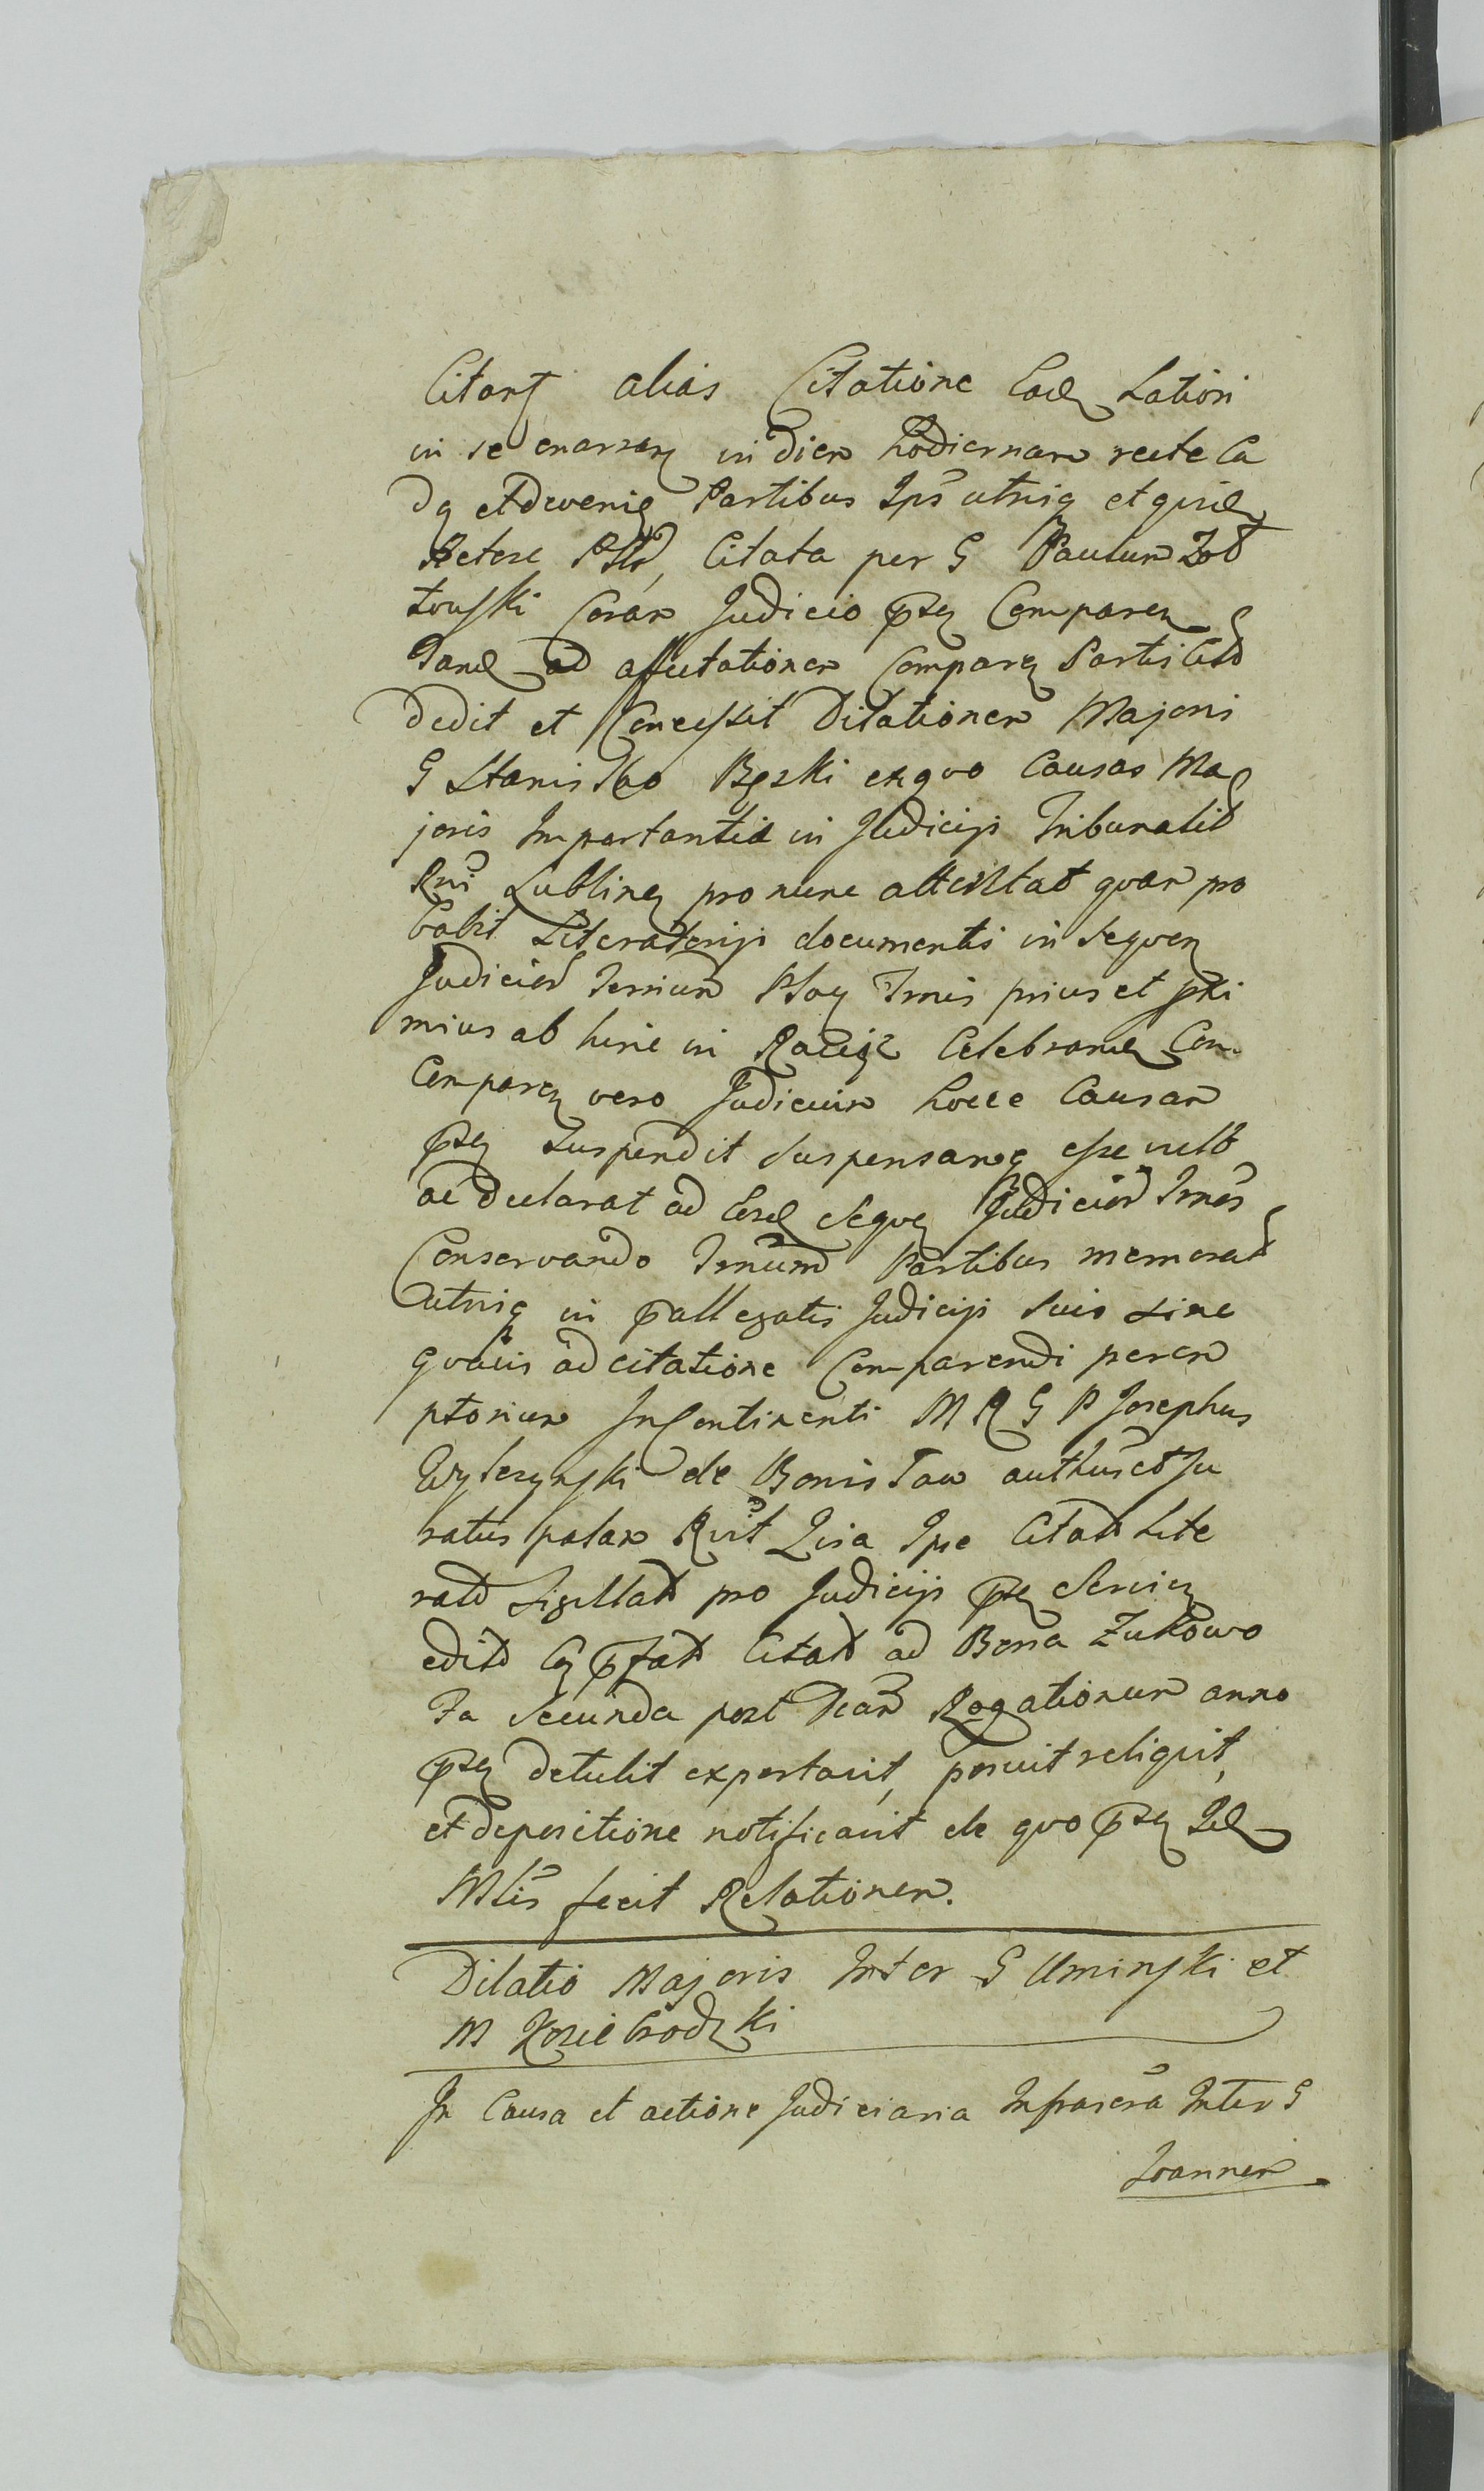 Citant alias Citatione Ead Latiori
in se enarran in diem hodiernam recte Ca
dn et deveni Partibus Ips utriq et quid
Actore Citata per G Paulum Zot
towski Coram Judicio psn Comparen
Tand ad affectationem Comparen Partis Citt
dedit et Concessit Dilationem Majori
G Stanislao Bęski ex quo Causas Ma
joris Importantia in Judicijs Tribunalit
Rni Lublinen pro nunc attentat quam pro
babit Literatorijs documentis in sequen
Judicior Terminor Trnis prius et pxi
mius ab hinc in Raciąż Celebrand Com
Comparen vero Judicium hocce Causam
psn Suspendit Suspensamq esse vult
ac declarat ad Eosd Seqven Judicior Trnos
Conservando Trnum Partibus memorat
utriq in pallegatis Judicijs Suis Sine
qvavis adcitatione Comparendi perem
ptorium Incontinenti M R G P Josephus
de Bonislaw authus et Ju
ratus palam Rvit Qia Ipse Citatt Lite
ratt Sigillatt pro Judicijs psn Servien
editt Cn pfatt Citatt ad Bona Zukowo
Fa Secunda post Dcam Rogationum anno
psn detulit exportavit, posuit reliqvit,
et depositione notificavit de qvo psn Id
Mlis fecit Relationem.
Dilatio Majoris Inter G Uminski et
M Koziebrodzki
In Causa et actione Judiciaria Infrascra Inter G
Joannem